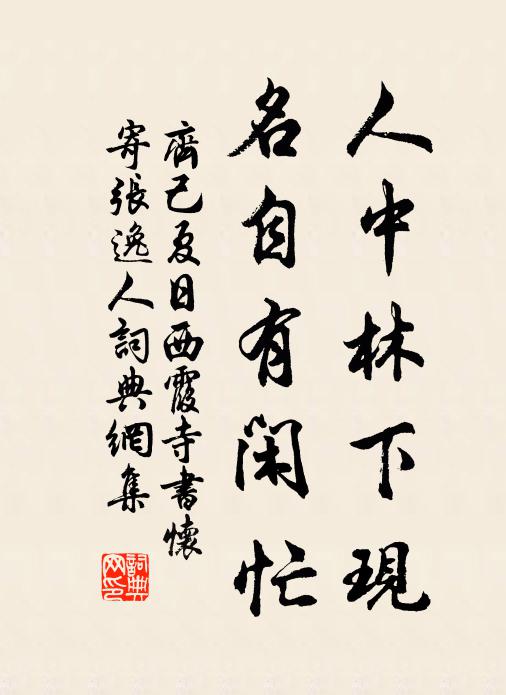 人中林下現
名自有閑忙
齊己夏日西霞寺書懷
寄張逸人詞典網集
詞典网印